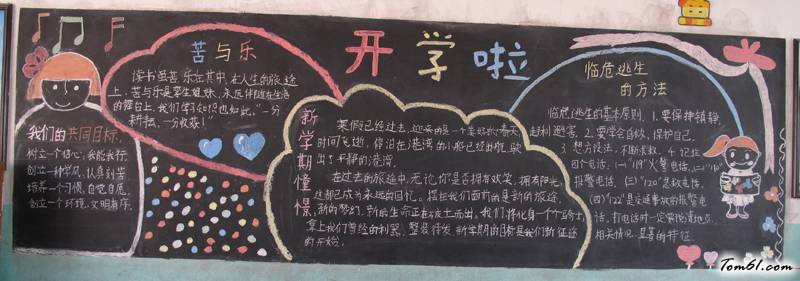 开学啦
苦与乐
读书虽苦,乐在其中,在人生的旅途
上,苦与乐是孪生姐妹,永远伴随在生活
的舞台上,我们学习知识也如此,"一分
新学期憧憬
寒假已经过去,迎来的是一个美好的春天
时间飞逝,停泊在港湾的小船已经出航,驶
出了平静的港湾。
在过去的旅途中,无论你是否拥有欢笑,拥有阳光,
这都已成为永远的回忆。摆在我们面前的是新的旅途,
新的梦幻,新的生命正在
我们的共同目标
树立一个信心,我能我行
创立一种学风,认真刻苦
培养一个习惯,自觉自愿
创立一个环境,文明有序。
临危逃生
的方法
临危逃生的基本原则,1.要保持镇静,
趋利避害。2.要学会自救,保护自己。
3.想方设法,不断求救。4.记住
四个电话,(一)"119"火警电话。(二)"110"
报警电话。(三)"120"急救电话。
(四)"122"是交通事故的报警电
话。打电话时一定要说清地点、
相关情况、显著的特征。
Tom61.com